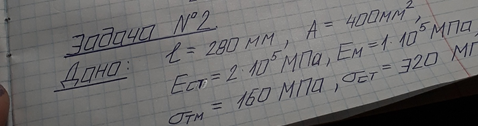 Задача №2
Дано: l = 280 мм, A = 400мм²,
Eст = 2·10⁵ МПа, Eм = 1·10⁵ МПа,
σтм = 160 МПа, σст = 320